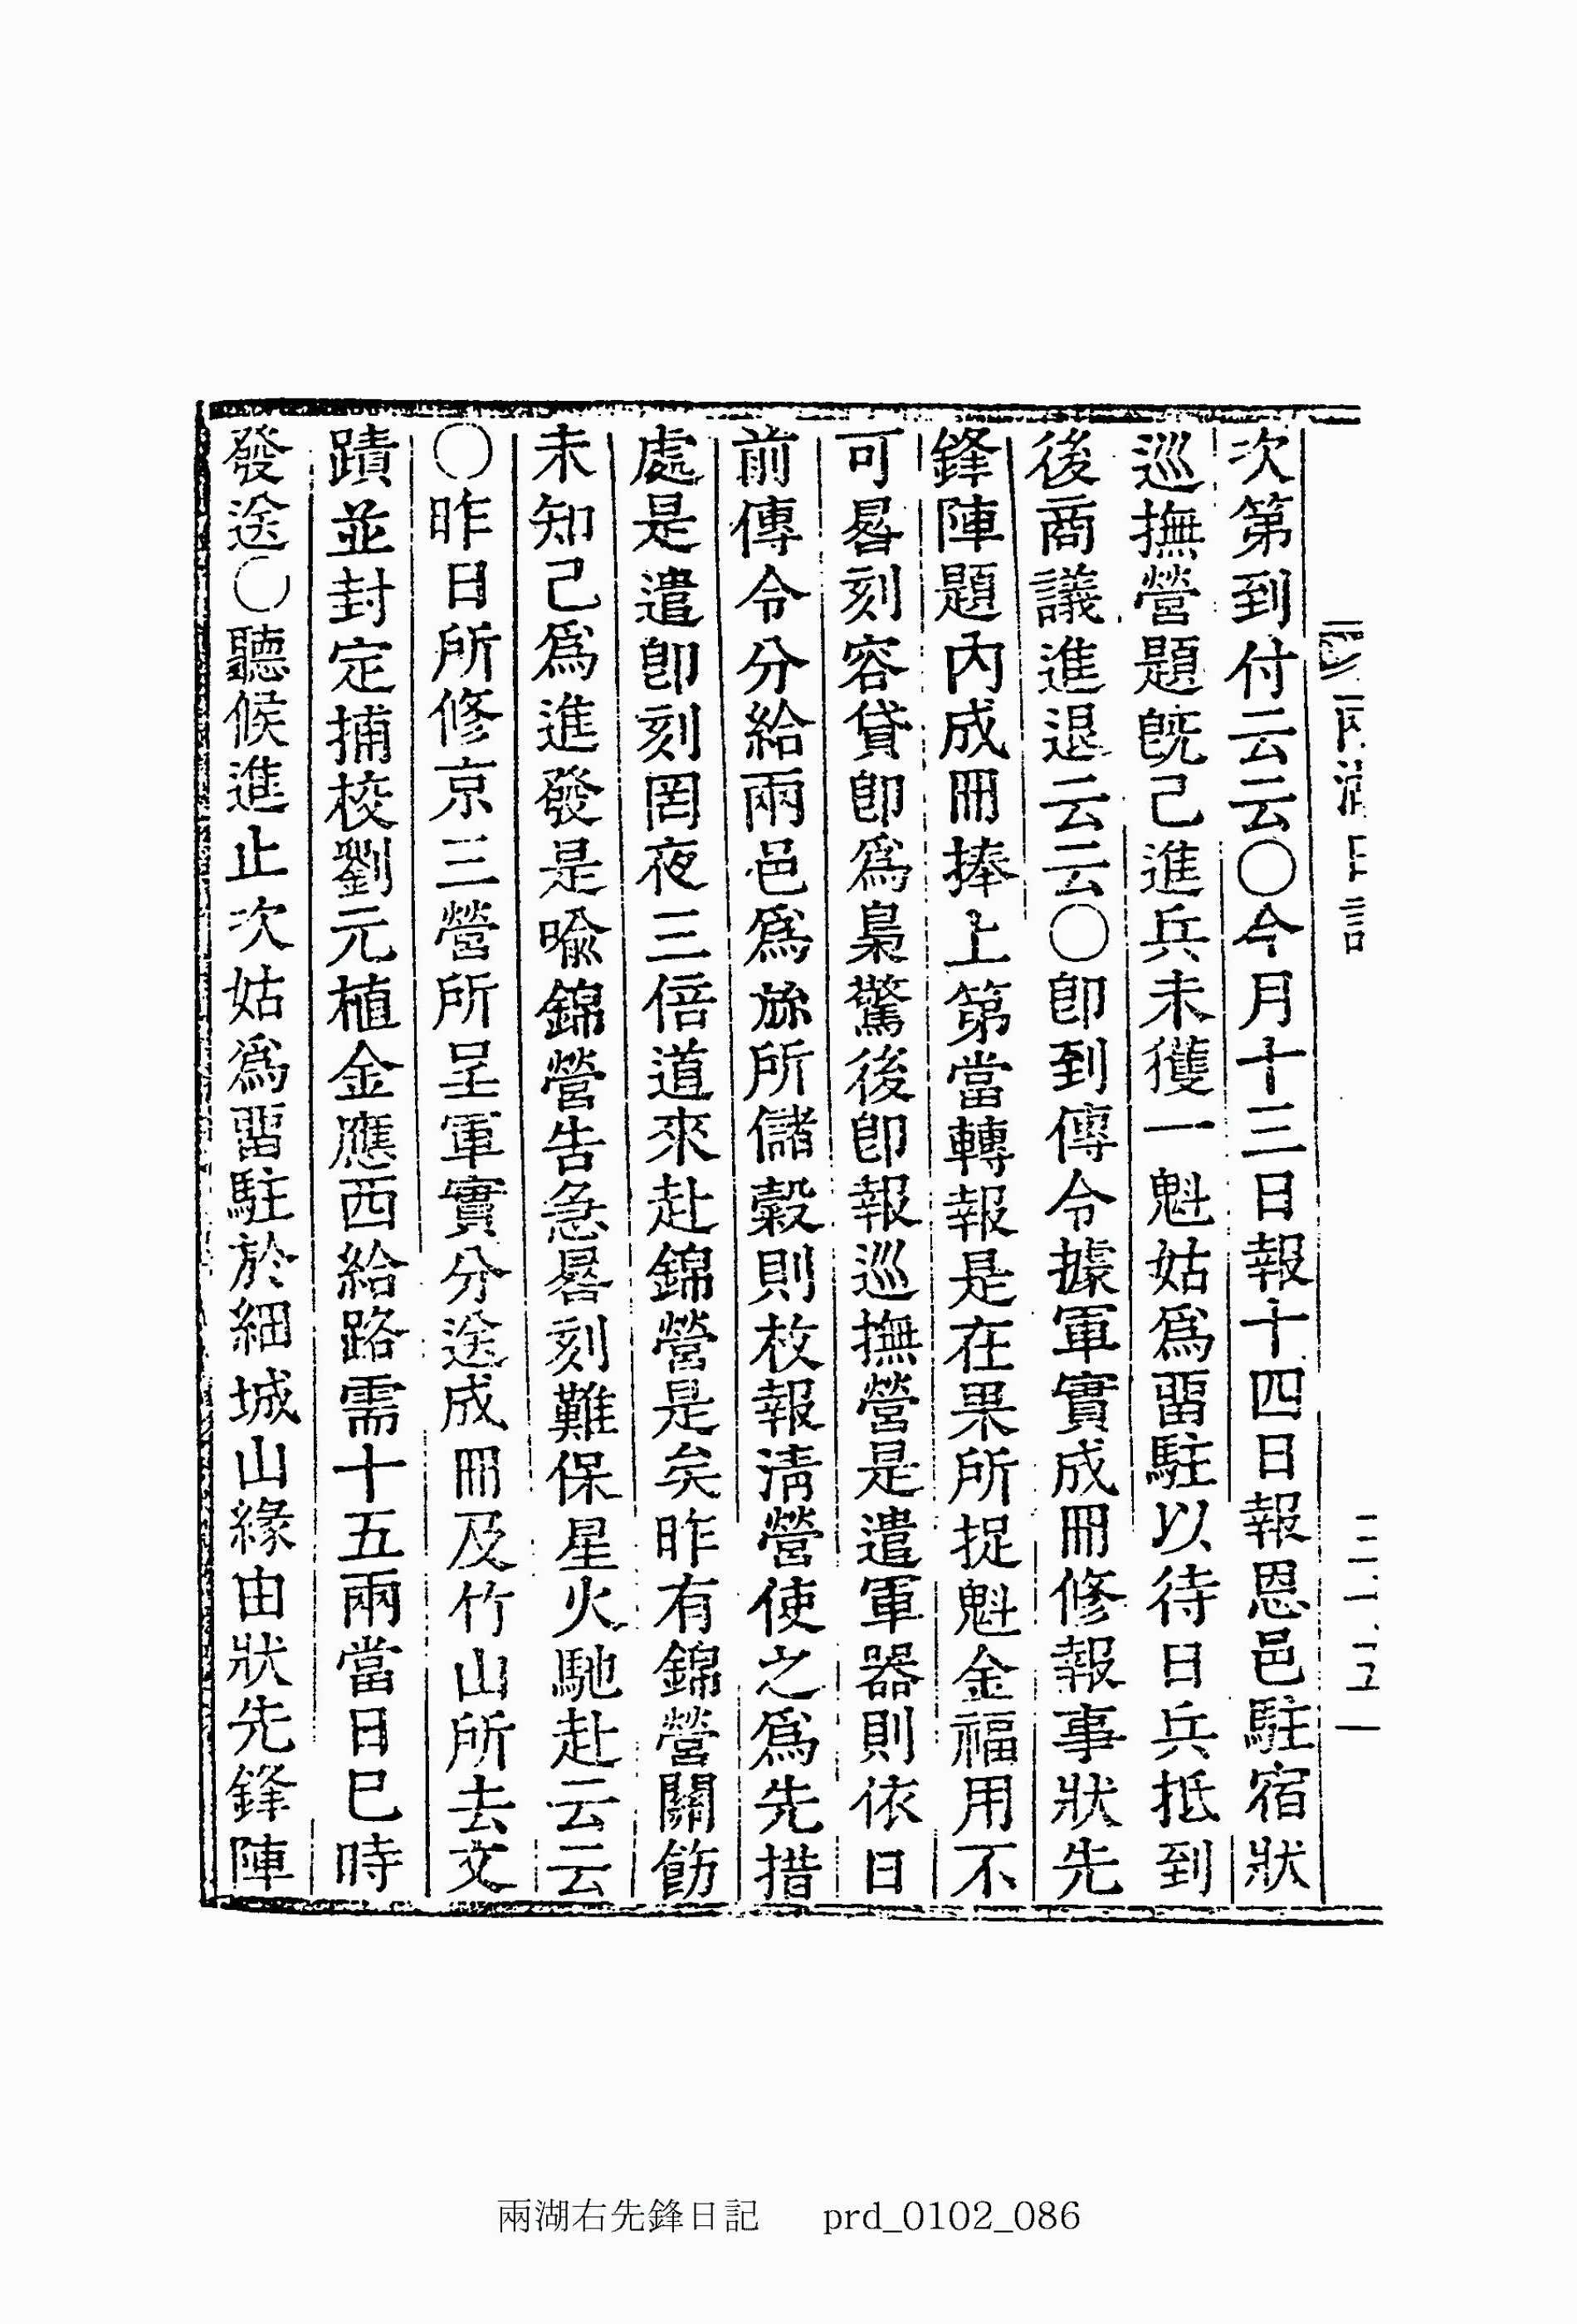 次第到付云云〇今月十三日報十四日報恩邑駐宿狀
巡撫營題旣已進兵未獲一魁姑爲畱駐以待日兵抵到
後商議進退云云〇卽到傳令據軍實成冊修報事狀先
鋒陣題內成冊捧上第當轉報是在果所捉魁金福用不
可晷刻容貸卽爲梟驚後卽報巡撫營是遣軍器則依日
前傳令分給兩邑爲旀所儲穀則枚報淸營使之爲先措
處是遣卽刻罔夜三倍道來赴錦營是矣昨有錦營關飭
未知已爲進發是喩錦營告急晷刻難保星火馳赴云云
〇昨日所修京三營所呈軍實分送成冊及竹山所去文
蹟並封定捕校劉元植金應西給路需十五兩當日巳時
發送〇聽候進止次姑爲畱駐於細城山緣由狀先鋒陣
兩湖右先鋒日記 prd_0102_086